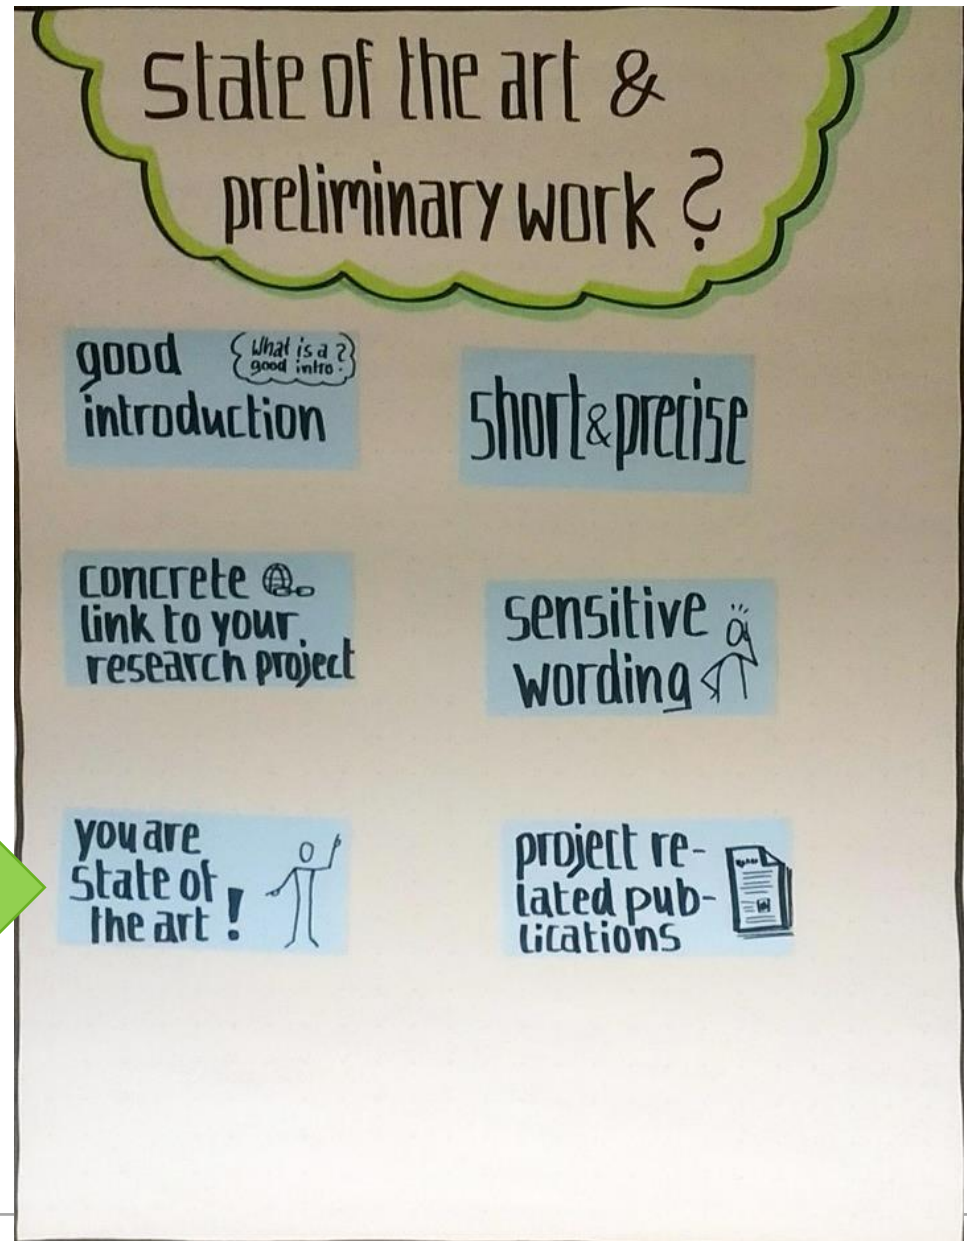 State of the art &
preliminary work ?
good
introduction
What is a ?
good intro
short & precise
concrete
link to your
research project
sensitive
wording
you are
state of
the art !
project re-
lated pub-
lications